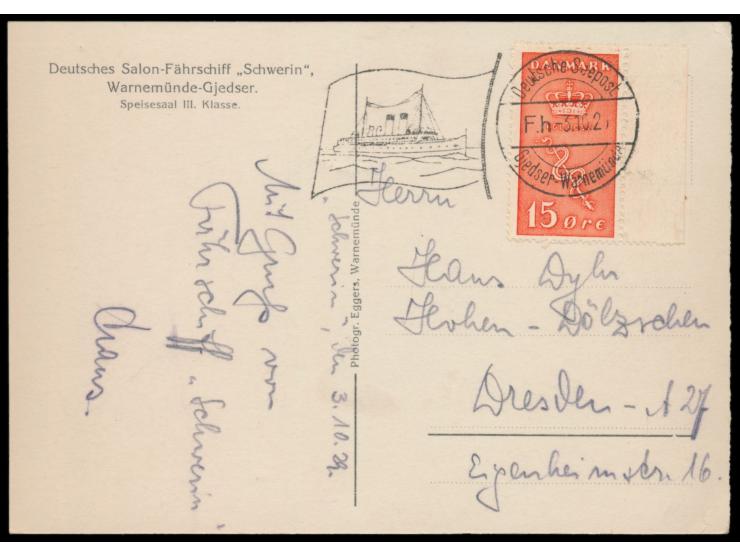 Deutsches Salon-Fährschiff „Schwerin",
Warnemünde-Gjedser.
Speisesaal III. Klasse.
DANMARK
15 ØRE
Deutsche Seepost
F.h -3.10.2
Gjedser-Warnemünde
Photogr. Eggers, Warnemünde
„Schwerin", den 3.10.29.
Mit Gruß vom
Fährschiff „Schwerin"
Hans.
Herrn
Hans Dyhr
Hohen-Dölzschen
Dresden-A 27
Eigenheimstr. 16.